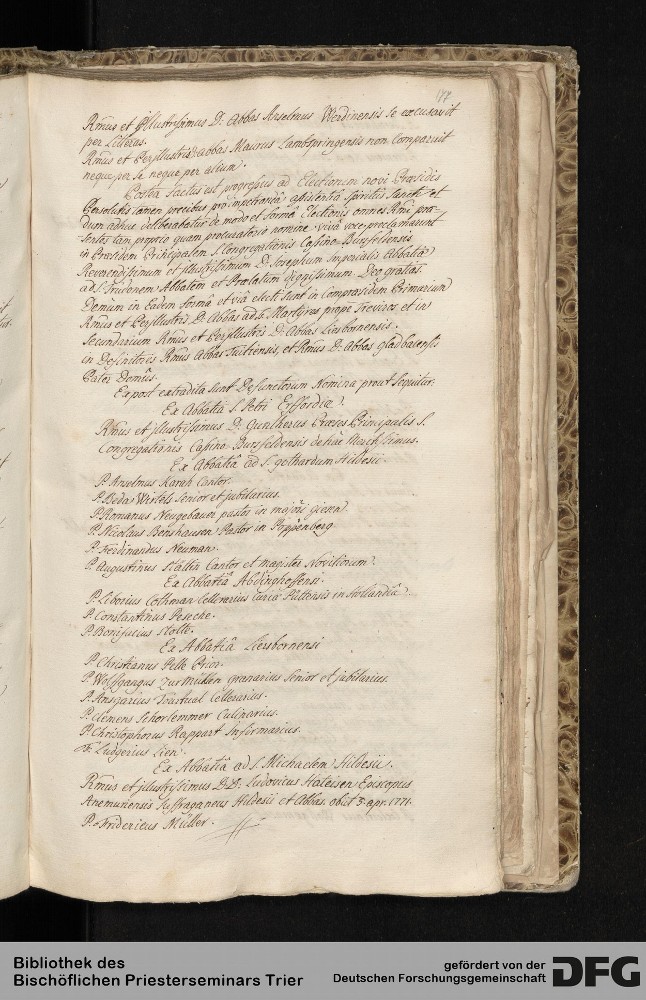 177
Rmus et Illustrissimus D. Abbas Anselmus Werdinensis se excusavit
per Litteras.
Rmus et Perillustris abbas Maurus Lambspringensis non Comparuit
neque per se neque per alium.
Postea factus est progressus ad Electionem novi Præsidis
Persolutis tamen precibus pro impetranda assistentia Spiritus Sancti et
dum adhuc deliberabatur de modo et forma Electionis omnes Rmi præ-
sentes tam proprio quam procuratorio nomine viva voce proclamarunt
in Præsidem Principalem S. Congregationis Cassino Bursfeldensis
Reverendissimum et Illustrissimum D. Josephum Imperialis Abbatiæ
ad S. Trudonem Abbatem et Prælatum dignissimum. Deo gratias.
Demum in Eadem forma et via electi sunt in Compræsidem Primarium
Rmus et Perillustris D. Abbas ad S. Martyres prope Treviros, et in
Secundarium Rmus et Perillustris D. Abbas Liesbornensis.
in Definitores Rmus Abbas Tuitiensis, et Rmus D. Abbas gladbacensis
Pater Domus.
Expost extradita sunt Defunctorum Nomina prout sequitur.
Ex Abbatia S. Petri Erffordiæ.
Rmus et Illustrissimus D. Guntherus Præses Principalis S.
Congregationis Cassino Bursfeldensis
Ex Abbatia ad S. gothardum Hildesii.
P. Anselmus Karah Cantor.
P. Beda Wirtels Senior et jubilarius.
P. Romanus Neugebauer pastor in majori giesen.
P. Nicolaus Bonshausen Pastor in Poppenberg
P. Ferdinandus Neuman.
P. Augustinus Cantor et magister Novitiorum.
Ex Abbatia Abdinghoffensi.
P. Liborius Cothman Cellerarius Curiæ Puttensis in Hollandia
P. Constantinus Peseche.
P. Bonifacius Nolte.
Ex Abbatia Liesbornensi
P. Christianus Pelle Prior.
P. Wolffgangus Zurmühlen granarius Senior et jubilarius.
P. Ansgarius Cellerarius.
P. Clemens Schorlemmer Culinarius.
P. Christophorus Rappart Infirmarius.
Fr. Ludgerius Lien.
Ex Abbatia ad S. Michaelem Hildesii.
Rmus et illustrissimus D.D. Ludovicus Hateisen Episcopus
Anemuriensis Suffraganeus Hildesii et Abbas obiit 3. apr. 1771.
P. Fridericus Müller.
Bibliothek des
Bischöflichen Priesterseminars Trier
gefördert von der
Deutschen Forschungsgemeinschaft
DFG